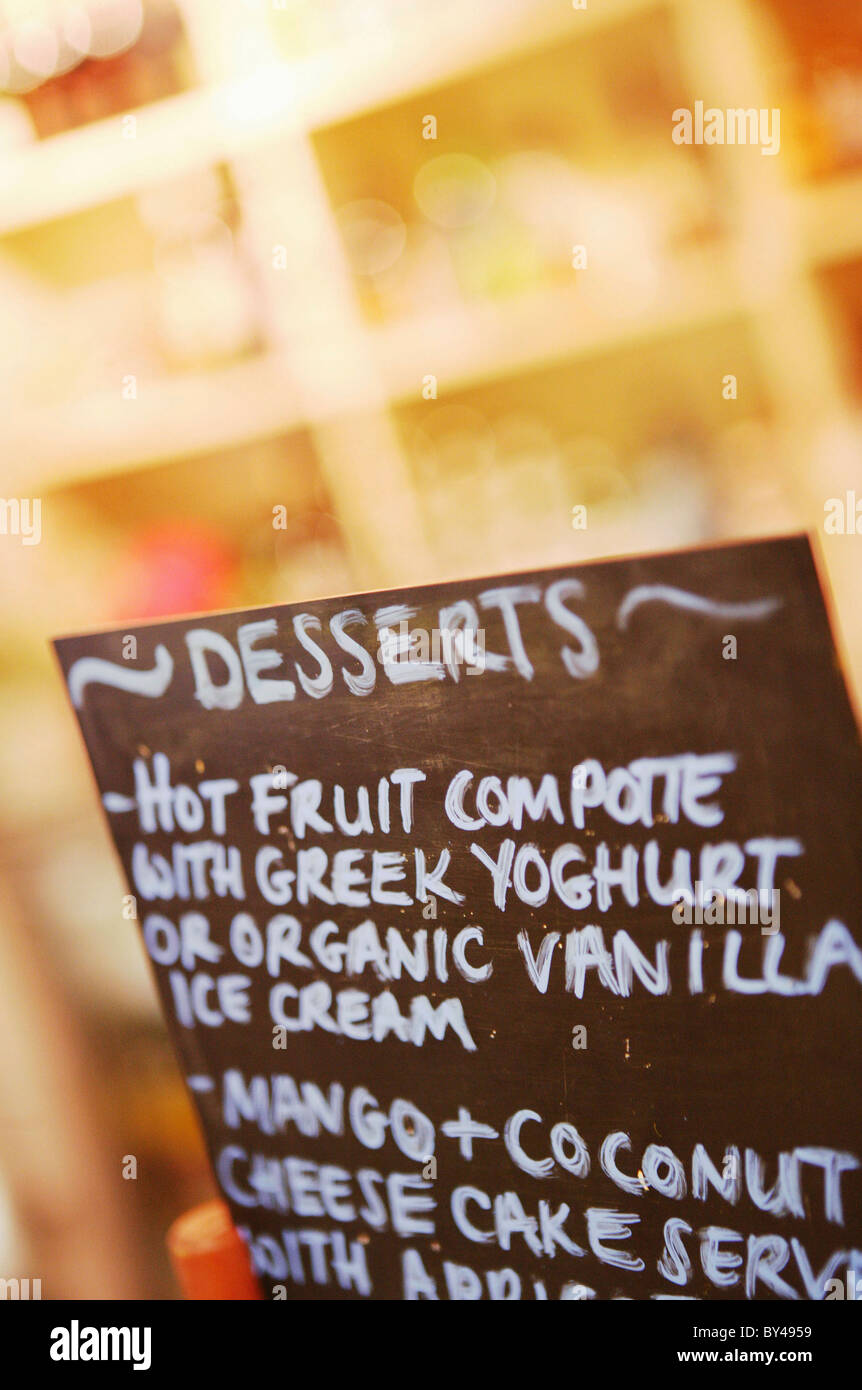 ~ DESSERTS ~
- HOT FRUIT COMPOTTE
WITH GREEK YOGHURT
OR ORGANIC VANILLA
ICE CREAM
- MANGO + COCONUT
CHEESE CAKE SERV
WITH
alamy
Image ID: BY4959
www.alamy.com